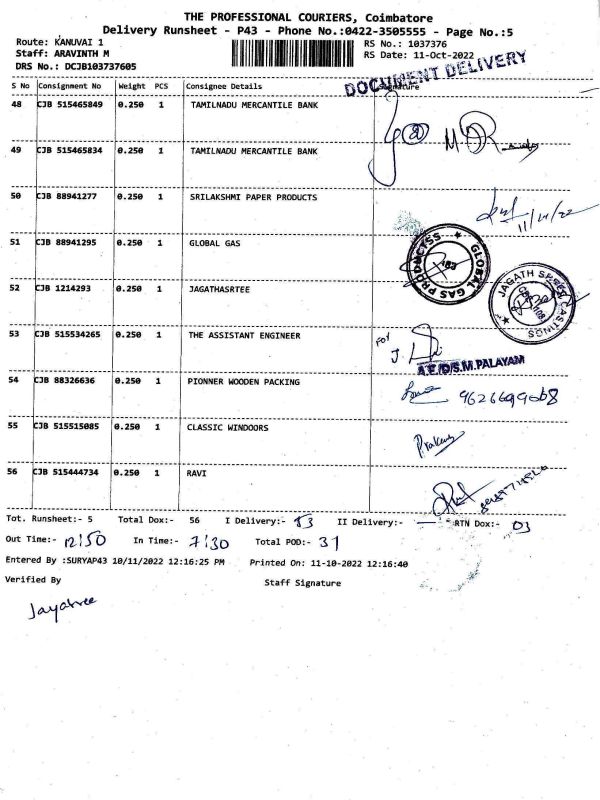 THE PROFESSIONAL COURIERS, Coimbatore
Delivery Runsheet - P43 - Phone No.:0422-3505555 - Page No.:5
Route: KANUVAI 1
RS No.: 1037376
Staff: ARAVINTH M
RS Date: 11-Oct-2022
DRS No.: DCJB103737605
DOCUMENT DELIVERY
S No Consignment No Weight PCS Consignee Details Signature
48 CJB 515465849 0.250 1 TAMILNADU MERCANTILE BANK
49 CJB 515465834 0.250 1 TAMILNADU MERCANTILE BANK
50 CJB 88941277 0.250 1 SRILAKSHMI PAPER PRODUCTS
51 CJB 88941295 0.250 1 GLOBAL GAS
GLOBAL GAS PRODUCTSS
52 CJB 1214293 0.250 1 JAGATHASRTEE
JAGATH CASTINGS
53 CJB 515534265 0.250 1 THE ASSISTANT ENGINEER
For
A.E/D/S.M.PALAYAM
54 CJB 88326636 0.250 1 PIONNER WOODEN PACKING
55 CJB 515515085 0.250 1 CLASSIC WINDOORS
56 CJB 515444734 0.250 1 RAVI
Tot. Runsheet:- 5 Total Dox:- 56 I Delivery:- 53 II Delivery:- — RTN Dox:- 03
Out Time:- 12:50 In Time:- 7:30 Total POD:- 31
Entered By :SURYAP43 10/11/2022 12:16:25 PM Printed On: 11-10-2022 12:16:40
Verified By Staff Signature
Jayatree